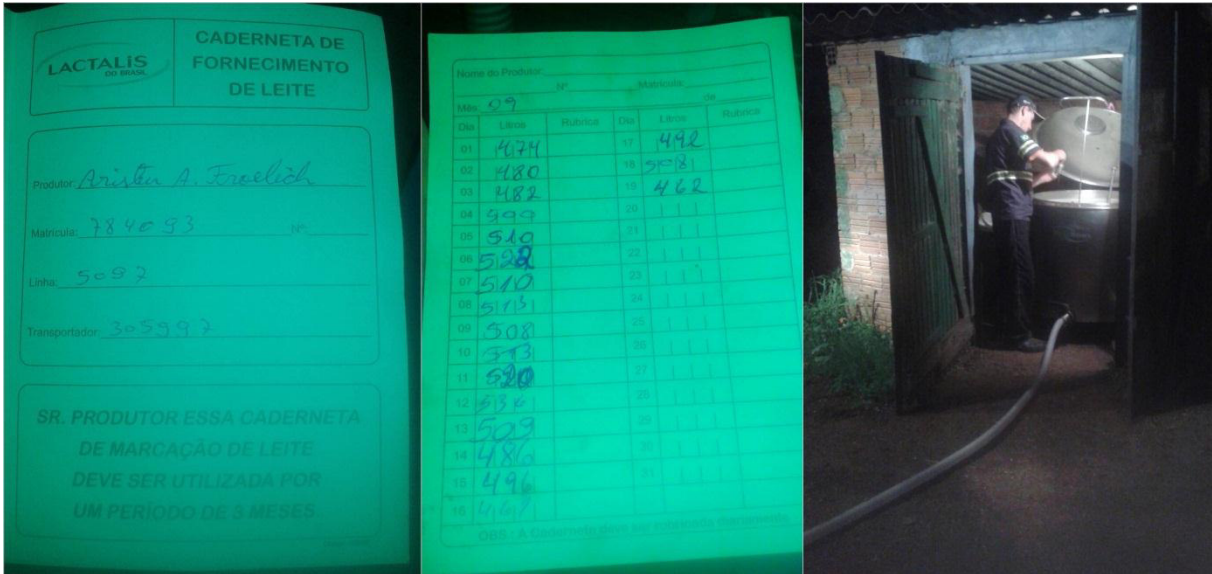 LACTALIS
DO BRASIL
CADERNETA DE
FORNECIMENTO
DE LEITE
Produtor: A. Froelich
Matrícula: 784093 Nº
Linha: 5097
Transportador: 305997
SR. PRODUTOR ESSA CADERNETA
DE MARCAÇÃO DE LEITE
DEVE SER UTILIZADA POR
UM PERÍODO DE 3 MESES
Nome do Produtor:
Nº Matrícula:
Mês: 09 de
Dia Litros Rubrica Dia Litros Rubrica
01 474 17 492
02 480 18 508
03 482 19 462
04 20
05 510 21
06 522 22
07 510 23
08 513 24
09 508 25
10 513 26
11 520 27
12 28
13 509 29
14 486 30
15 496 31
16
OBS.: A Caderneta deve ser rubricada diariamente